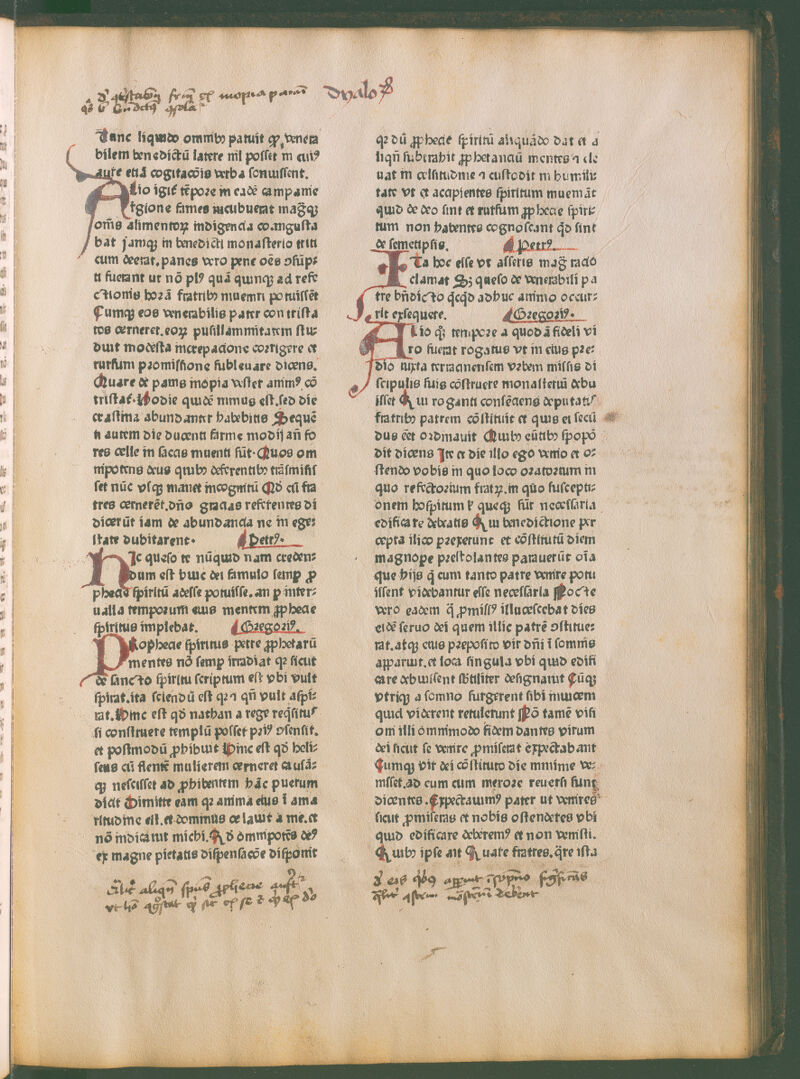 Dyaloꝝ
Tunc liquido omnibꝰ patuit ꝙ venera
bilem benedictū latere nil posset in cuiꝰ
aure etiā cogitacōis verba sonuissent.
Alio igit̄ tēpore in eadē campanie
regione fames incubuerat magq̄ꝫ
om̄s alimentoꝝ indigencia coangusta
bat Jamqꝫ in benedicti monasterio triti
cum deerat, panes vero pene oēs ꝯsūp⸗
ti fuerant ut nō plꝰ quā quinqꝫ ad refe
ctionis horā fratribꝰ inueniri potuissēt
Cumqꝫ eos venerabilis pater contrista
tos cerneret. eoꝝ pusillanimitatem stu⸗
duit modesta increpacione corrigere et
rursum promissione subleuare dicens.
Quare de panis inopia vester animꝰ cō
tristat̄. Hodie quidē minus est. sed die
crastina abundanter habebitis Sequē
ti autem die ducenti farine modij an̄ fo
res celle in saccis inuenti sūt. Quos om
nipotens deus quibꝰ deferentibꝰ trāsmisis
set nūc vsqꝫ manet incognitū Qd̄ cū fra
tres cernerēt. dn̄o gracias referentes di
dicerūt iam de abundancia ne in eges
state dubitarent. Petrꝰ.
Dic queso te nūquid nam creden⸗
dum est huic dei famulo semꝑ ꝓ
phecie spiritū adesse potuisse. an ꝑ inter⸗
ualla temporum eius mentem ꝓphecie
spiritus implebat. Gregoriꝰ.
Prophecie spiritus petre ꝓphetarū
mentes nō semꝑ irradiat qꝛ sicut
de sancto spiritu scriptum est vbi vult
spirat. ita sciendū est qꝛ ⁊ qn̄ vult aspi⸗
rat. Hinc est qd̄ nathan a rege reqͥsitus
si construere templū posset priꝰ ꝯsensit.
et postmodū ꝓhibuit Hinc est qd̄ heli⸗
seus cū flentē mulierem cerneret causā⸗
qꝫ nescisset ad ꝓhibentem hāc puerum
dicit Dimitte eam qꝛ anima eius ī ama
ritudine est. et dominus celauit a me. et
nō indicauit michi. Qd̄ omnipotēs deꝰ
ex magne pietatis dispensacōe disponit
qꝛ dū ꝓphecie spiritū aliquādo dat et a
liqn̄ subtrahit ꝓphetanciū mentes ⁊ ele
uat in celsitudine ⁊ custodit in humili⸗
tate vt et accipientes spiritum inueniāt
quid de deo sint et rursum ꝓphecie spiri⸗
tum non habentes cognoscant qd̄ sint
de semetipsis. Petrꝰ.
Ita hoc esse vt asseris mag̅ racio
clamat Sꝫ queso de venerabili pa
tre bn̄dicto qͥcqͥd adhuc animo occur⸗
rit exsequere. Gregoriꝰ.
Alio qͦꝫ tempore a quodā fideli vi
ro fuerat rogatus vt in eius pre⸗
dio iuxta terracinensem vrbem missis di
scipulis suis cōstruere monasteriū debu
isset Qui roganti consēciens deputatꝭ
fratribꝰ patrem cōstituit et quis ei secū
dus eēt ordinauit Quibꝰ eūtibꝰ spopō
dit dicens Ite et die illo ego venio et o⸗
stendo vobis in quo loco oratorium in
quo refectorium fratꝝ. in quo suscepti⸗
onem hospitum ł queqꝫ sūt necessaria
edificare debeatis Qui benedictione per
cepta ilico perrexerunt et cōstitutū diem
magnope prestolantes parauerūt oīa
que hijs qͥ cum tanto patre venire potu
issent videbantur esse necessaria Nocte
vero eadem qͣ ꝓmissꝰ illucescebat dies
eidē seruo dei quem illic patrē ꝯstitue⸗
rat. atqꝫ eius preposito vir dn̄i ī somnis
apparuit. et loca singula vbi quid edifi
care debuissent sbtiliter designauit Cūqꝫ
vtriqꝫ a somno surgerent sibi inuicem
quid viderent retulerunt Nō tamē visi
oni illi omnimodo fidem dantes virum
dei sicut se venire ꝓmiserat expectabant
Cumqꝫ vir dei cōstituto die minime ve⸗
nisset. ad eum cum merore reuersi sunt
dicentes. Expectauimꝰ pater ut venires
sicut ꝓmiseras et nobis ostenderes vbi
quid edificare deberemꝰ et non venisti.
Quibꝰ ipse ait Quare fratres. qͣre ista